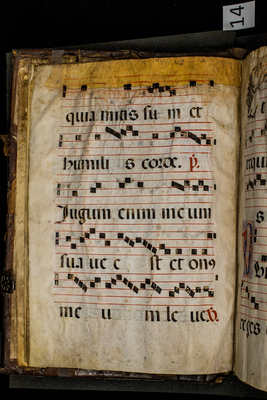 14
quia mitis sum et
humilis corde. p.
Iugum enim meum
suave est et onus
meum leve. V.